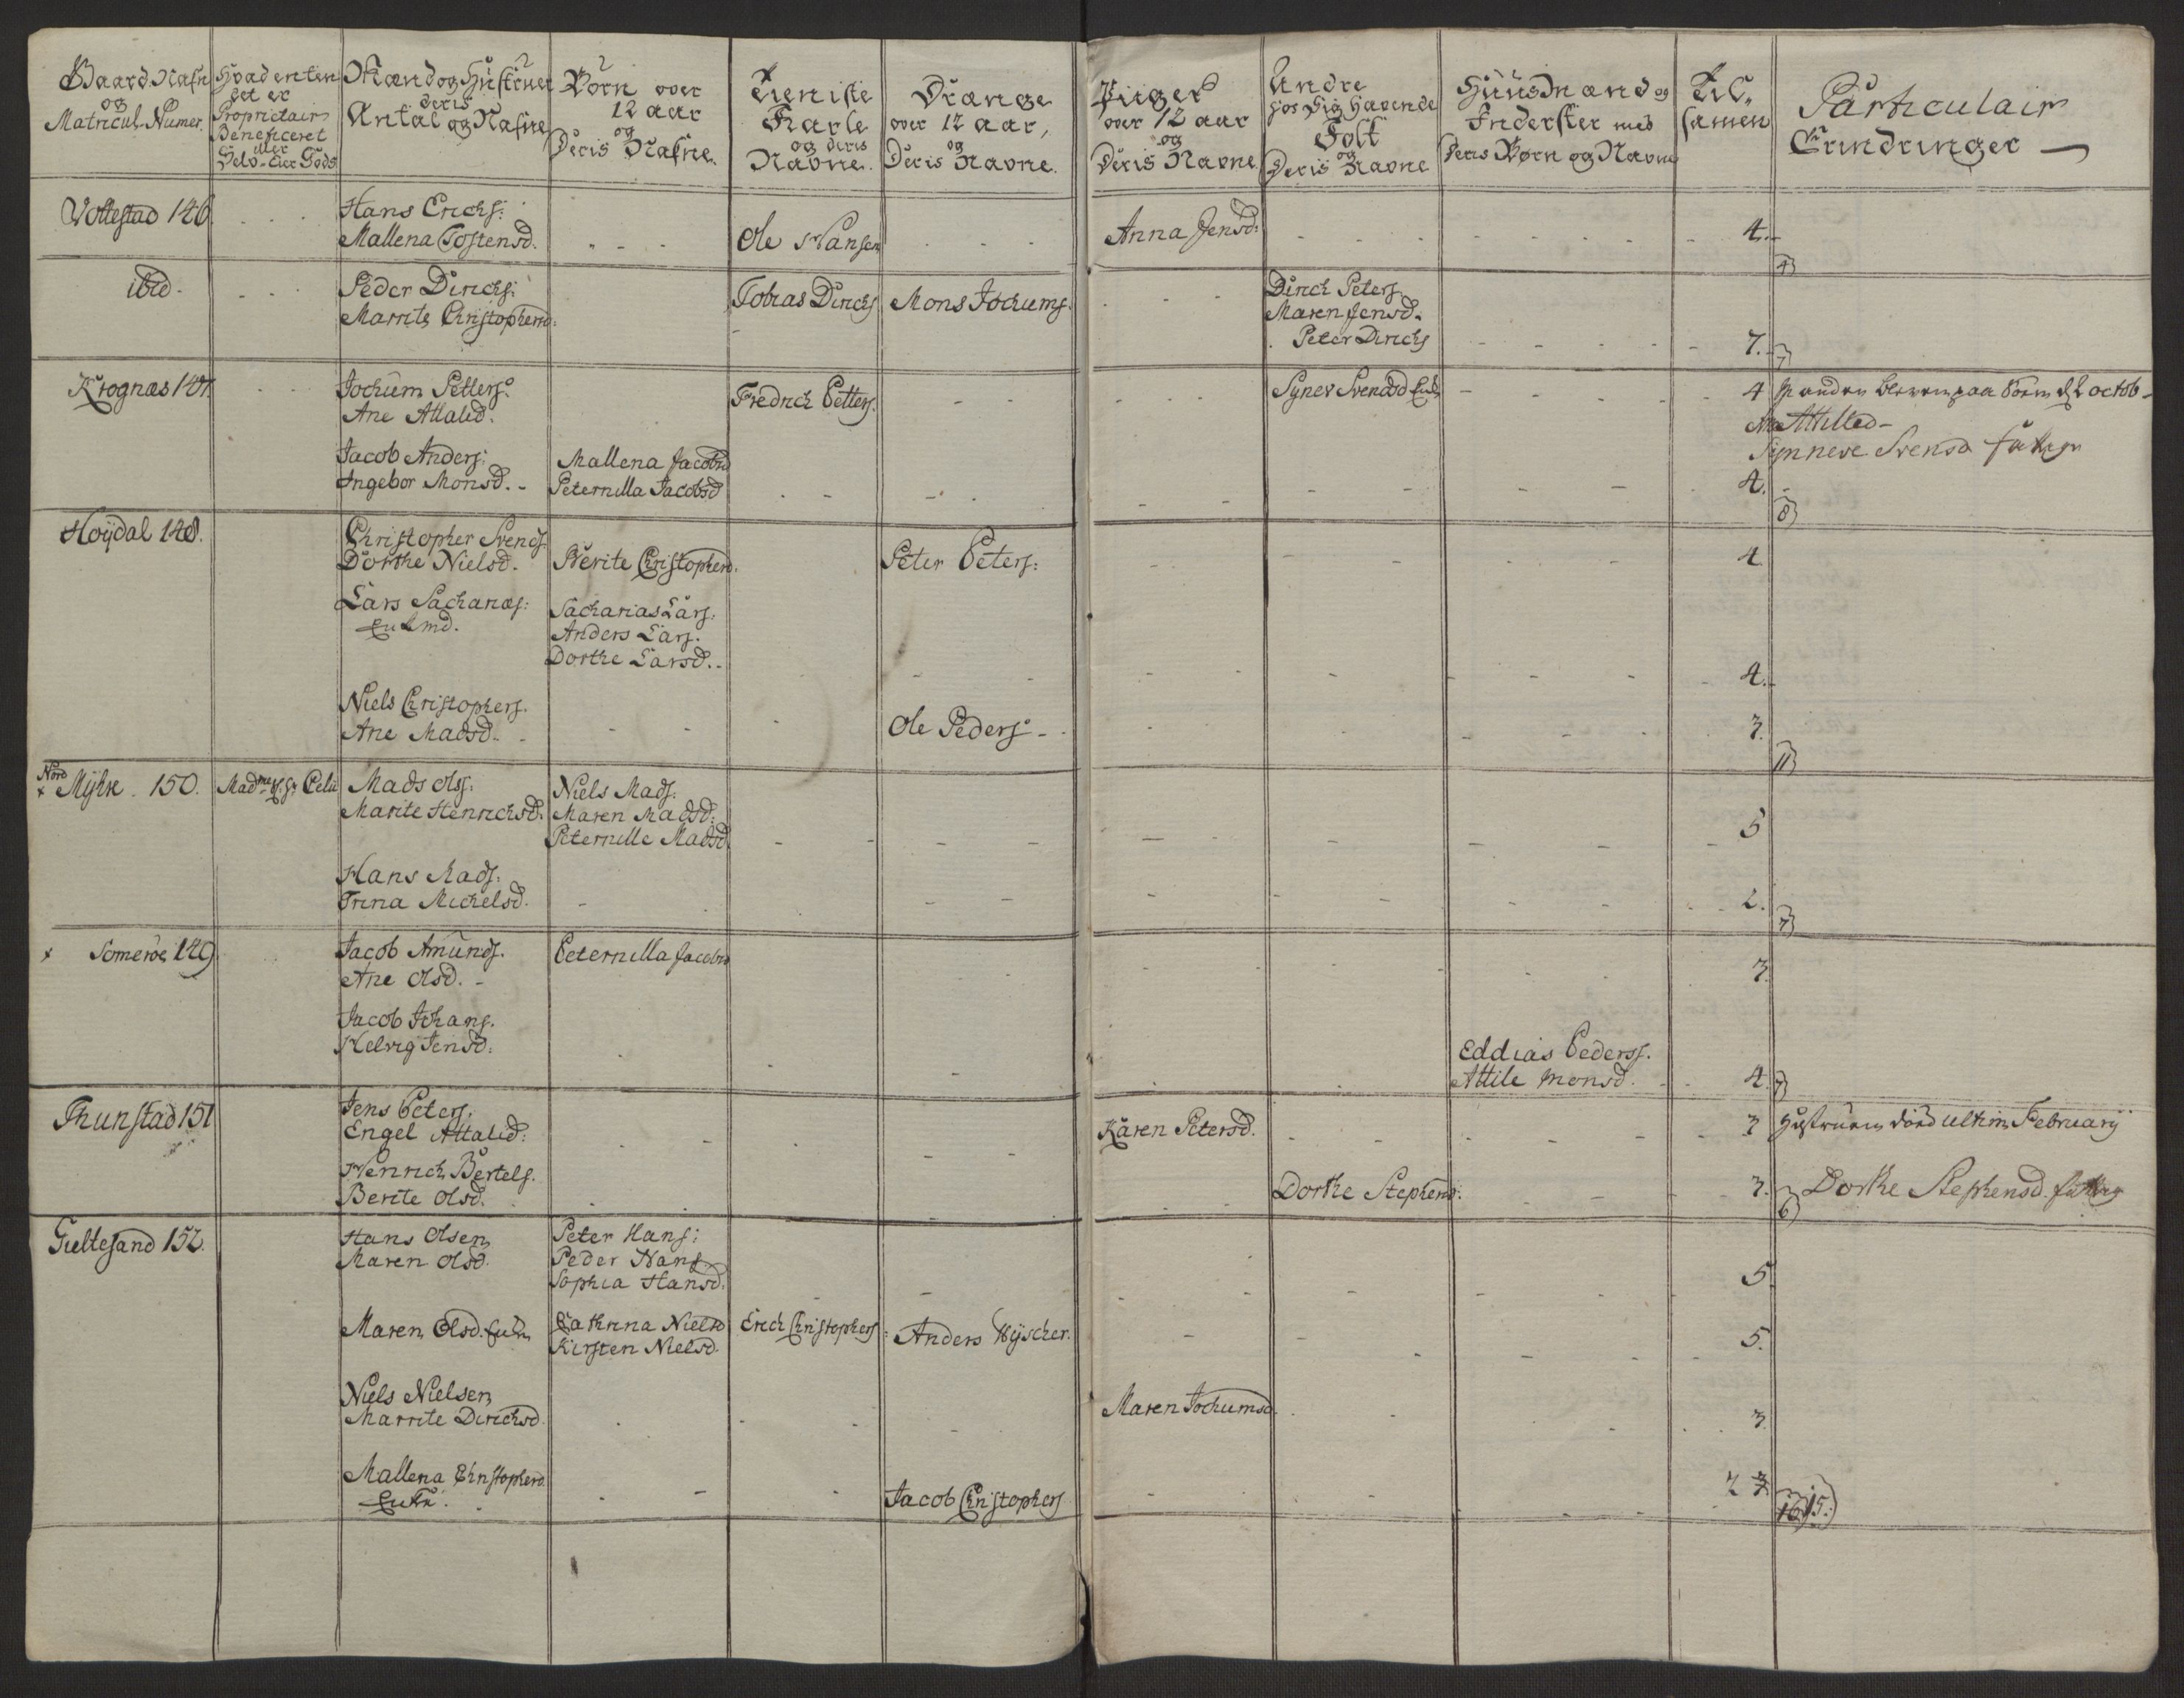 Gaard Nafn og Matricul-Numer.
Hvad enten det er Proprietair Beneficeret eller Selv-Eier Gods
Mænd og Hustruer deris Antal og Nafne
Børn over 12 aar og Deris Nafne.
Tieniste Karle og deris Navne.
Drænge over 12 aar, og Deris Navne.
Piiger over 12 aar og Deris Navne.
Andre hos Sig havende Folk og Deris Navne
Huusmænd og Inderster med Deris Børn og Navne
Til samen
Particulair Erindringer
Vottestad 146. Hans Erichs:
Mallena Tostensd. Ole Hansen Anna Jensd: 4.
4
ibid. Peder Dirichs: Tobias Dirichs Mons Jochums. Dirich Peters.
Marrite Christophersd: Maren Jensd.
Peter Dirichs 7.
7
Krognæs 147. Jochum Petters. Fredrich Petters. Synev Svendsd 4
Ane Attalid. Attilled
Jacob Anders: Mallena Jacobsd Synneve Svensd
Ingebor Monsd. Peternilla Jacobsd 4.
8
Høÿdal 148. Christopher Svends
Dorthe Nielsd. Berite Christophersd. Peter Peters: 4
Lars Sacharias: Sacharias Lars:
Enkemd. Anders Lars.
Dorthe Larsd. 4.
Niels Christophers.
Ane Madsd. Ole Peders 3.
11
Nord Mÿkle 150. Mads Ols: Niels Mads.
Marite Henrichsd. Maren Madsd: 5
Peternille Madsd
Hans Mads:
Trina Michelsd. 2.
7
Someroe 149 Jacob Amunds. Peternilla Jacobsd
Ane Olsd. 3
Jacob Johans.
Helvig Jensd: Eddias Pederss.
Attile Monsd. 4.
7
Thunstad 151 Jens Peters.
Engel Attalid: Karen Petersd. 3 Hustruen død ultim Februarÿ
Henrich Bertels.
Berite Olsd. Dorthe Stephensd. 3. Dorthe Stephensd.
6
Tieltesand 152. Hans Olsen Peter Hans:
Maren Olsd. Peder Hans
Sophia Hansd. 5
Maren Olsd. Enke Cathrina Nielsd Erich Christophers: Anders Wÿscher. 5.
Kirsten Nielsd.
Niels Nielsen Maren Jochumsd.
Marrite Dirichsd. 3
Mallena Christophersd. 2 3
Enke. Jacob Christophers 16 15